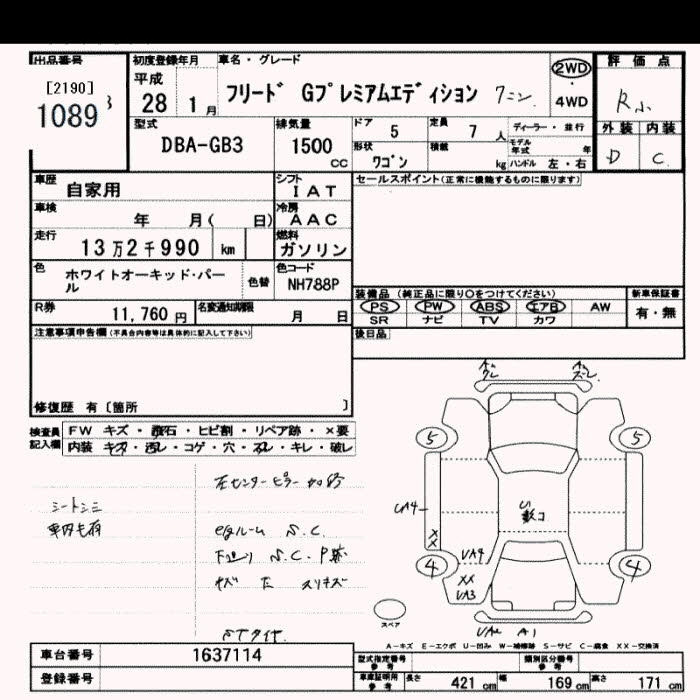 出品番号
[2190]
1089
初度登録年月
平成
28 年 1 月
車名・グレード
フリード Gプレミアムエディション 7ニン.
2WD
・
4WD
評価点
R小
外装 内装
D C.
型式
DBA-GB3
排気量
1500 cc
ドア 5
定員 7 人
形状 ワゴン
積載 kg
ディーラー・並行
モデル年式 年
ハンドル 左・右
車歴 自家用
シフト IAT
車検 年 月( 日)
冷房 AAC
走行 13万2千990 km
燃料 ガソリン
色 ホワイトオーキッド・パール
色替
色コード NH788P
R券 11,760 円
名変通知期限 月 日
セールスポイント(正常に機能するものに限ります)
装備品 (純正品に限り○をつけてください)
PS PW ABS エアB AW
SR ナビ TV カワ
新車保証書
有・無
後日品
注意事項申告欄(不具合内容等は具体的に記入して下さい)
修復歴 有〔箇所 〕
検査員記入欄
FW キズ・飛石・ヒビ割・リペア跡・×要
内装 キズ・汚レ・コゲ・穴・スレ・キレ・破レ
シートシミ
車内毛有
左センターピラー
S.C.
S.C.
STタイヤ.
5 5
4 4
XX
XX
A1
スペア
A-キズ E-エクボ U-凹み W-補修跡 S-サビ C-腐食 XX-交換済
車台番号 1637114
登録番号
型式指定番号 参考
類別区分番号 参考
車庫証明用 参考
長さ 421 cm 幅 169 cm 高さ 171 cm